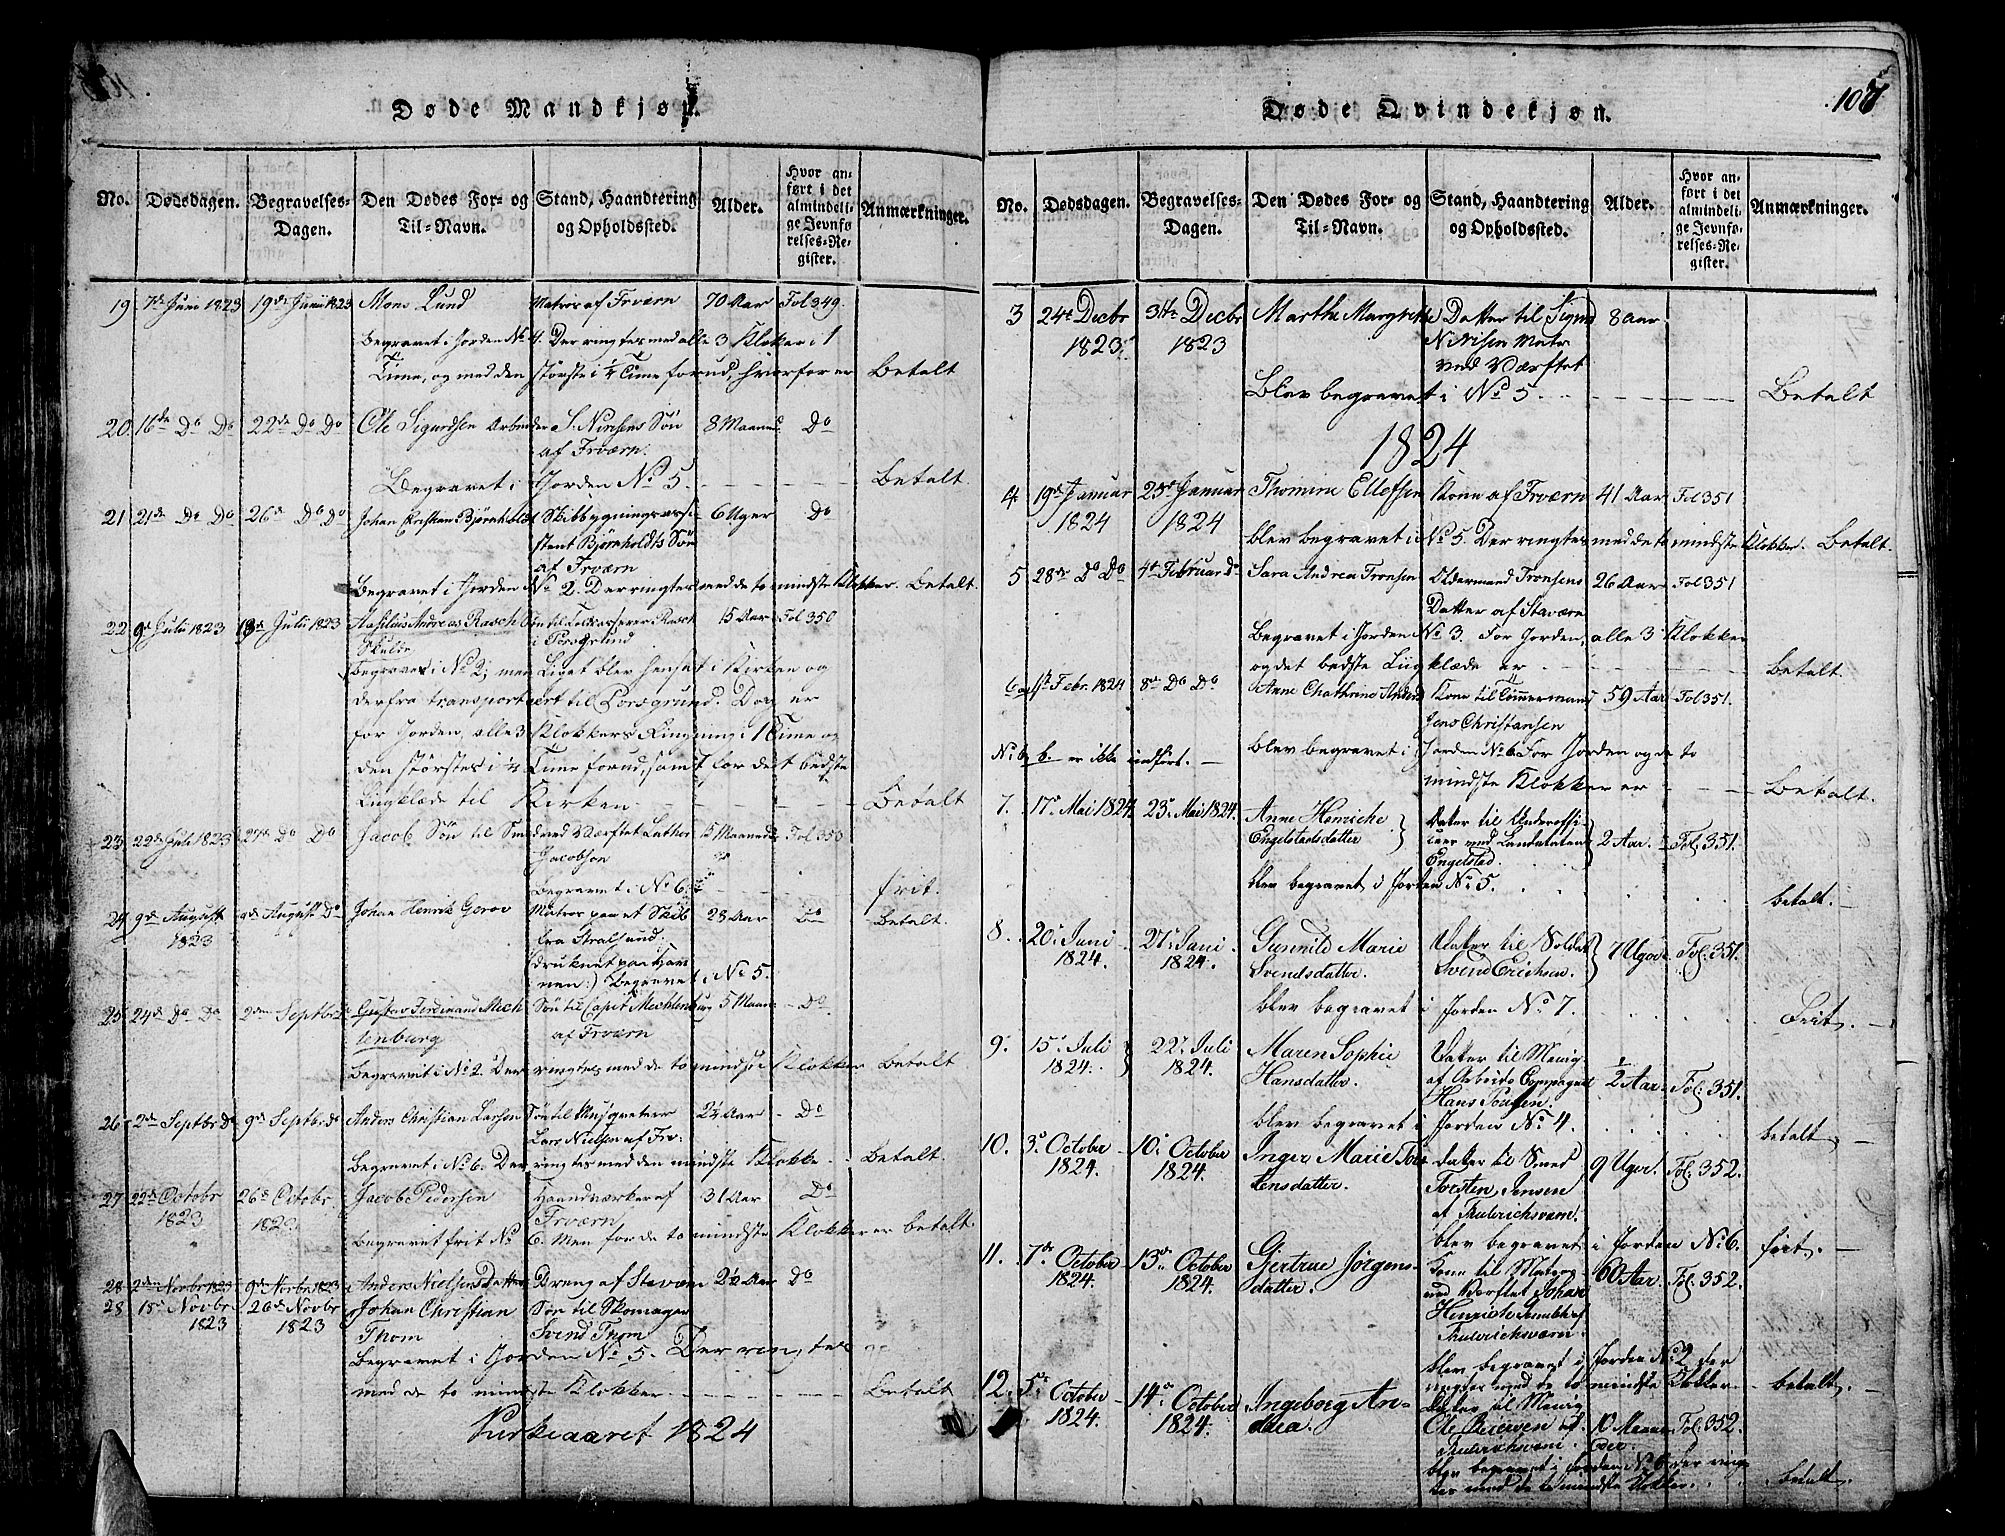 Døde Mandkjøn.
No.
Dødsdagen.
Begravelses-
Dagen.
Den Dødes For- og
Til-Navn.
Stand, Haandtering
og Opholdssted.
Alder.
Hvor an-
ført i det
almindeli-
ge Jevnfø-
relses-Re-
gister.
Anmærkninger.
19 7de Juni 1823 19de Juni 1823 Mons Lund Matros af Frværn 70 Aar Fol 349.
Begravet i Jorden No 4. Der ringtes med alle 3 Klokker i 1
Time, og med den største i 1/4 Time forud, hvorfor er Betalt
20 16de Do Do 22de Do Do Ole Sigurdsen Arbeider S. Nirisens Søn 8 Maaned Do
af Frværn.
Begravet i Jorden No 5. - - - - Betalt.
21 21de Do Do 26de Do Do Johan Cristian Bjørnholdt Skibbygningsassi- 6 Uger Do
stent Bjørnholdts Søn
af Frværn
Begravet i Jorden No 2. Der ringtes med de to mindste Klokker. Betalt.
22 9de Julii 1823 18de Julii 1823 Andreas Rasch Søn til Toldkasserer Rasch 15 Aar Fol 350
i Porsgrund
Begraves i No 2; men Liget blev hensat i Kirken og
derfra transportert til Porsgrund. Dog er
for Jorden, alle 3 Klokkers Ringning i 1 Time og
den størstes i 1/4 Time forud, samt for det bedste
Liigklæde til Kirken - - - - Betalt
23 22de Juli 1823 27de Do Do Jacob Søn til Smed ved Værftet Lathor 15 Maaneder Fol 350
Jacobson
Begravet i No 6. - - - frit.
24 9de August 9de August Do Johan Henrik Gerov Matros paa et Skib 28 Aar Do Betalt.
1823
fra Stralsund.
druknet paa Hav-
nen:) Begravet i No 5.
25 24de Do Do 2den Septbr Do Gustav Ferdinand Mech Søn til Capit Mechlenburg 5 Maan - Do.
lenburg
af Frværn
Begravet i No 2. Der ringtes med de to mindste Klokker Betalt
26 2den Septbr Do 9de Septbr Do Anders Christian Larsen Søn til Musqueteer 2 1/2 Aar - Do
Lars Nielsen af Fr:
Begravet i No 6. Der ringtes med den mindste Klokke - Betalt.
27 22de Octobr 26de Octobr Jacob Pedersen Haandværker af 31 Aar Do
1823 1823 Frværn
Begravet frit No 6. Men for de to mindste Klokker er betalt.
28 2den Novbr 1823 9de Novbr 1823 Anders Nielsens Datter Dreng af Staværn 2 1/2 Aar Do
28 15de Novbr 20de Novbr Johan Christian Søn til Skomager
1823 1823 Thom Svend Thom
Begravet i Jorden No 5. Der ringtes
med de to mindste Klokker - - - Betalt
Kirkeaaret 1824
Døde Qvindekjøn.
107
No.
Dødsdagen.
Begravelses-
Dagen.
Den Dødes For- og
Til-Navn.
Stand, Haandtering
og Opholdssted.
Alder.
Hvor an-
ført i det
almindeli-
ge Jevnfø-
relses-Re-
gister.
Anmærkninger.
3 24de Decbr 31te Decbr Marthe Margrethe Datter til Sigurd 8 Aar
1823 1823 Nirisen Matr
ved Værftet
Blev begravet i No 5. - - - - Betalt
1824
4 19de Januar 25de Januar Thomine Ellefsen Kone af Frværn 41 Aar Fol 351
1824 1824
blev begravet i No 5. Der ringtes med de to mindste Klokker. Betalt.
5 28de Do Do 4de Februar Do Sara Andrea Tronsen Oldermand Tronsens 26 Aar Fol 351
Datter af Staværn
Begravet i Jorden No 3. For Jorden, alle 3 Klokker
og det bedste Liigklæde er - - - Betalt.
6 a 1ste Febr. 1824 8de Do Do Anne Chathrine Anders Kone til Tømmermand 59 Aar Fol 351.
Jens Christansen
No 6, b. er ikke indført. - blev begravet i Jorden No 6. For Jorden og de to
mindste Klokker er - - - Betalt.
7. 17de Mai 1824. 23de Mai 1824. Anne Henriche Dater til Underoffi- 2 Aar. - Fol. 351.
Engelstadsdatter ceer ved Landetaten
Engelstad.
blev begravet i Jorden No 5. betalt. -
8. 20de Juni 27de Juni Gunnild Marie Dater til Soldat 7 Uger Fol. 351.
1824. 1824. Svendsdatter. Svend Erichsen.
blev begravet i Jorden No 7. Frit. -
9. 15de Juli 22de Juli Maren Sophie Dater til Menig 1/2 Aar. Fol. 351.
1824. 1824. Hansdatter. af Arbeids Compagniet
Hans
blev begravet i Jorden No 4. betalt. -
10. 3de October 10de October Inger Marie Tors- Datter til Smed 9 Uger. Fol. 352.
1824. 1824. tensdatter. Torsten Jensen
af Friderichsværn.
blev begravet i Jorden No 6. frit. -
11. 7de October 13de October Gjertrue Jørgens- Kone til Matros 60 Aar. Fol. 352.
1824. 1824. datter. ved Værftet Johan
Henrich Smidt af
Friderichsværn.
blev begravet i Jorden No 2 der
ringtes med de to mindste Klokker - betalt. -
12. 5de October 14de October Ingeborg An- Dater til Menig
1824. 1824. drea. Ole af 10 Maane- Fol. 352.
Friderichsværn. der.
blev begravet i Jorden No 6 der ring-
tes med de to mindste Klokker. betalt.